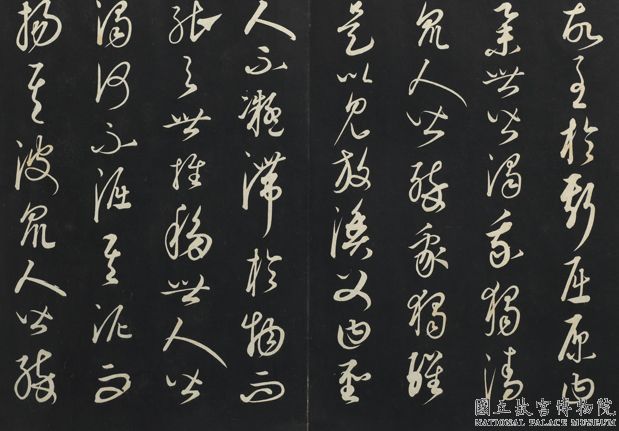 故至於斯屈原曰
舉世皆濁我獨清
眾人皆醉我獨醒
是以見放漁父曰聖
人不凝滯於物而
能與世推移世人皆
濁何不淈其泥而
揚其波眾人皆醉
國立故宮博物院
NATIONAL PALACE MUSEUM